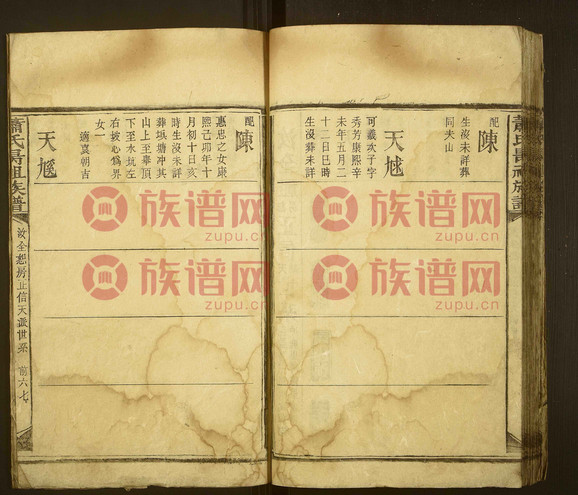 配
陳
生沒未詳葬
同夫山
天
可羲次子字
秀芳康熙辛
未年五月二
十二日巳時
生沒葬未詳
配
陳
惠思之女康
熙己卯年十
月初十日亥
時生沒未詳
葬垻塘冲其
山上至𡶶頂
下至水坑左
右披心為界
女一
適袁朝吉
天
蕭氏長祖族譜
汝全恕房正信天派世系
前六七
族谱网
zupu.cn
族谱网
zupu.cn
族谱网
zupu.cn
族谱网
zupu.cn